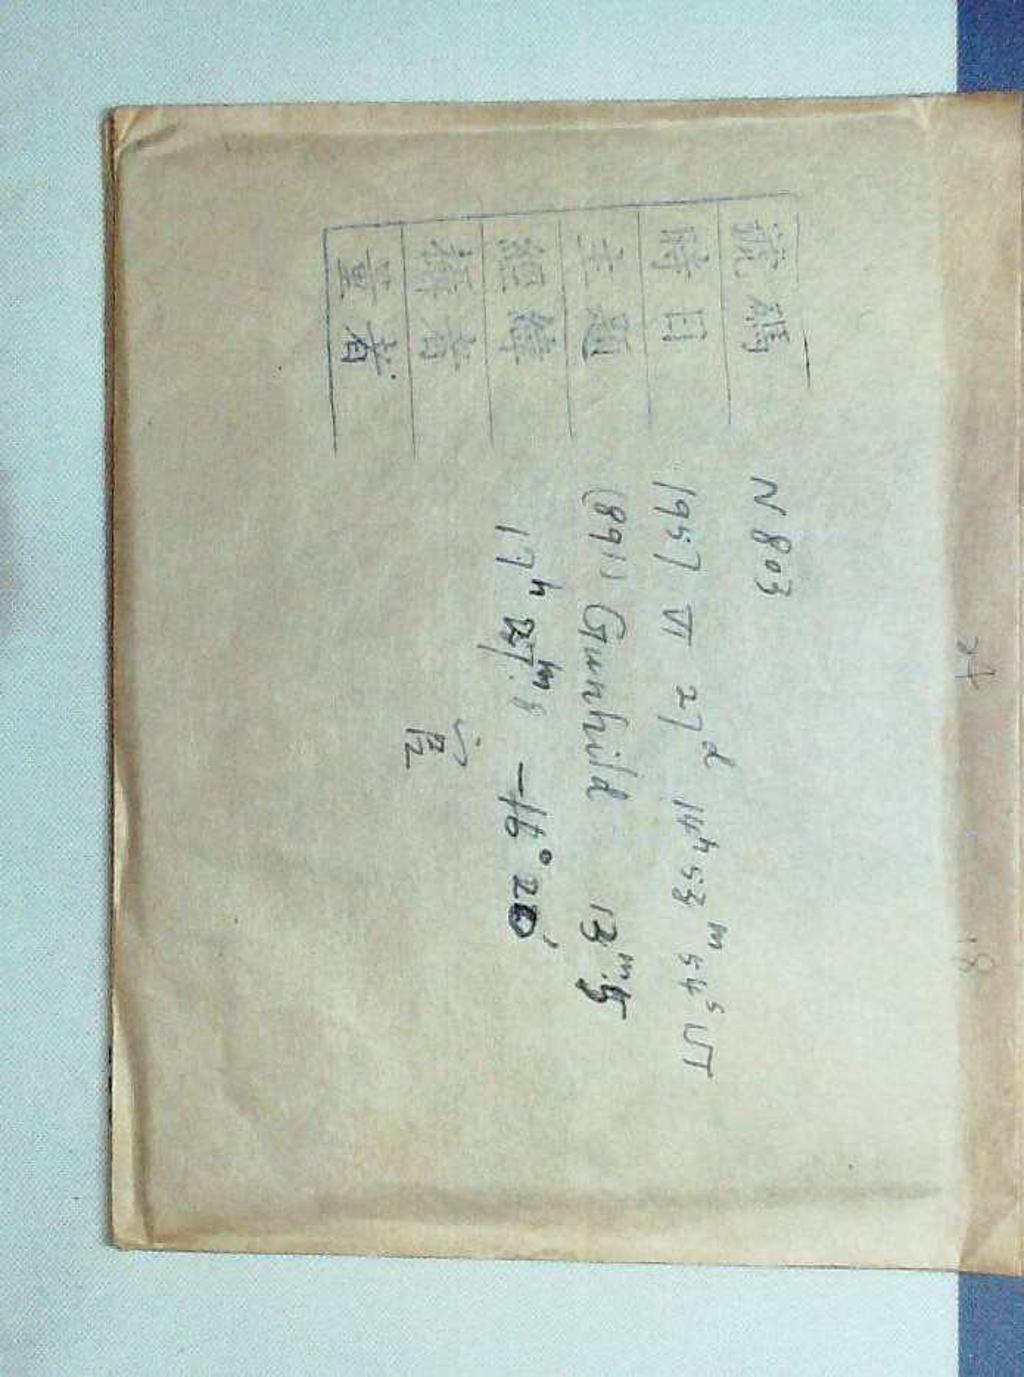 號碼 N 803
時日 1957 VI 27d 14h 53m 54s UT
主題 (891) Gunhild 13m.5
經緯 17h 27m.8 -16° 20′
攝者
量者